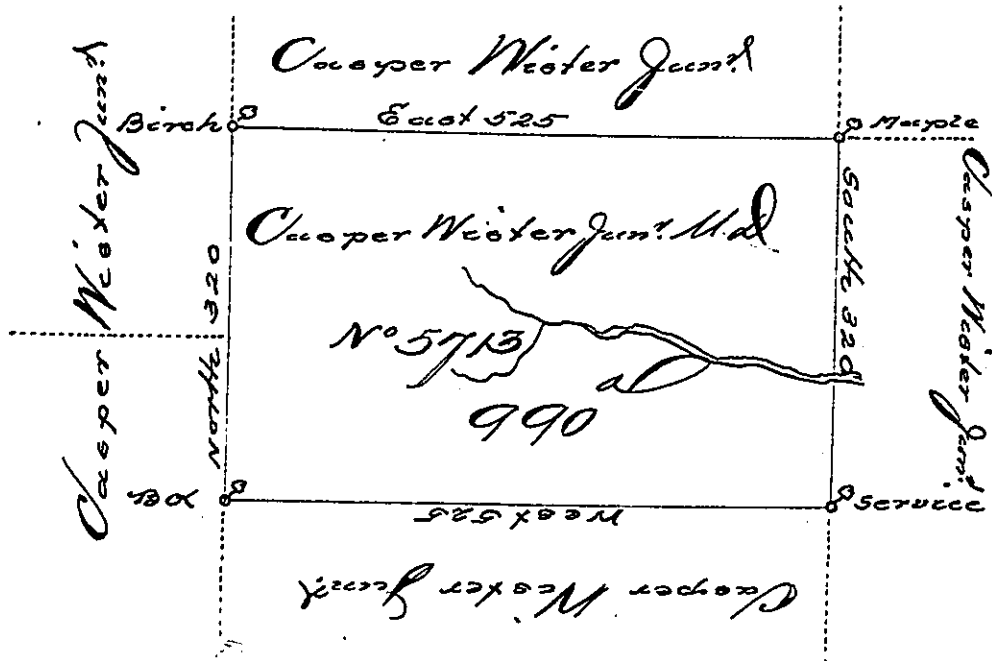 Casper Wister Junr
Birch
East 525
Maple
Casper Wister Junr
North 320
Casper Wister Junr. M.D
South 320
Casper Wister Junr
No 5713
a
990
Bd
West 525
Service
Casper Wister Junr